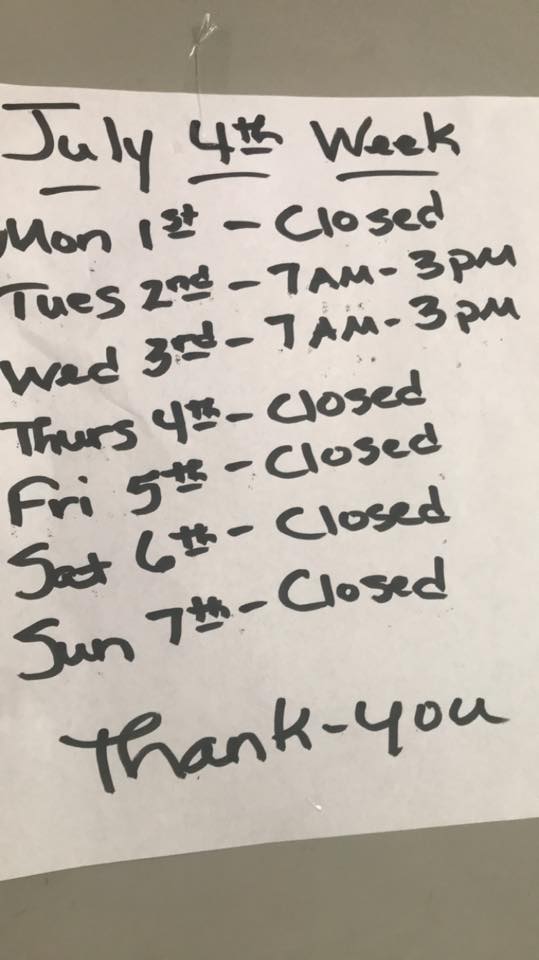 July 4th Week
Mon 1st - Closed
Tues 2nd - 7AM - 3PM
Wed 3rd - 7AM - 3PM
Thurs 4th - Closed
Fri 5th - Closed
Sat 6th - Closed
Sun 7th - Closed
Thank-you